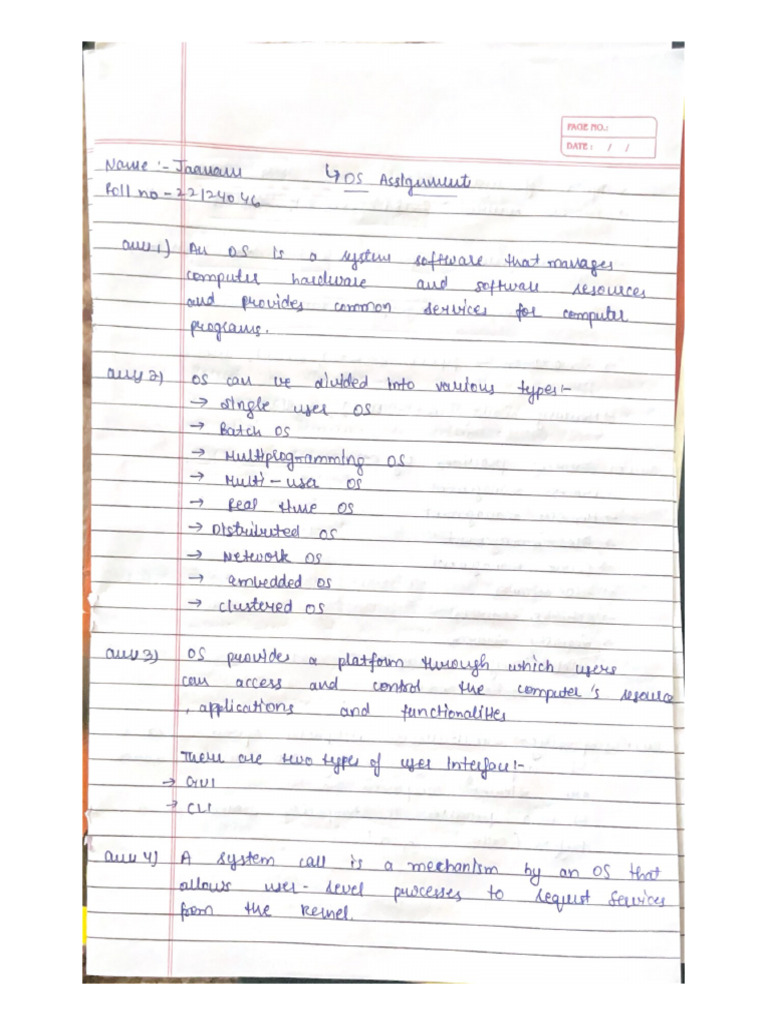 PAGE NO.:
DATE: / /
Name :- ↳ OS Assignment
Roll no - 22124046
ans 1) An OS is a system software that manages
computer hardware and software resources
and provides common services for computer
programs.
ans 2) OS can be divided into various types:-
→ Single user OS
→ Batch OS
→ Multiprogramming OS
→ Multi-user OS
→ Real time OS
→ Distributed OS
→ Network OS
→ embedded OS
→ clustered OS
ans 3) OS provides a platform through which users
can access and control the computer's resource
, applications and functionalities
There are two types of user Interface:-
→ GUI
→ CLI
ans 4) A system call is a mechanism by an OS that
allows user-level processes to request services
from the kernel.